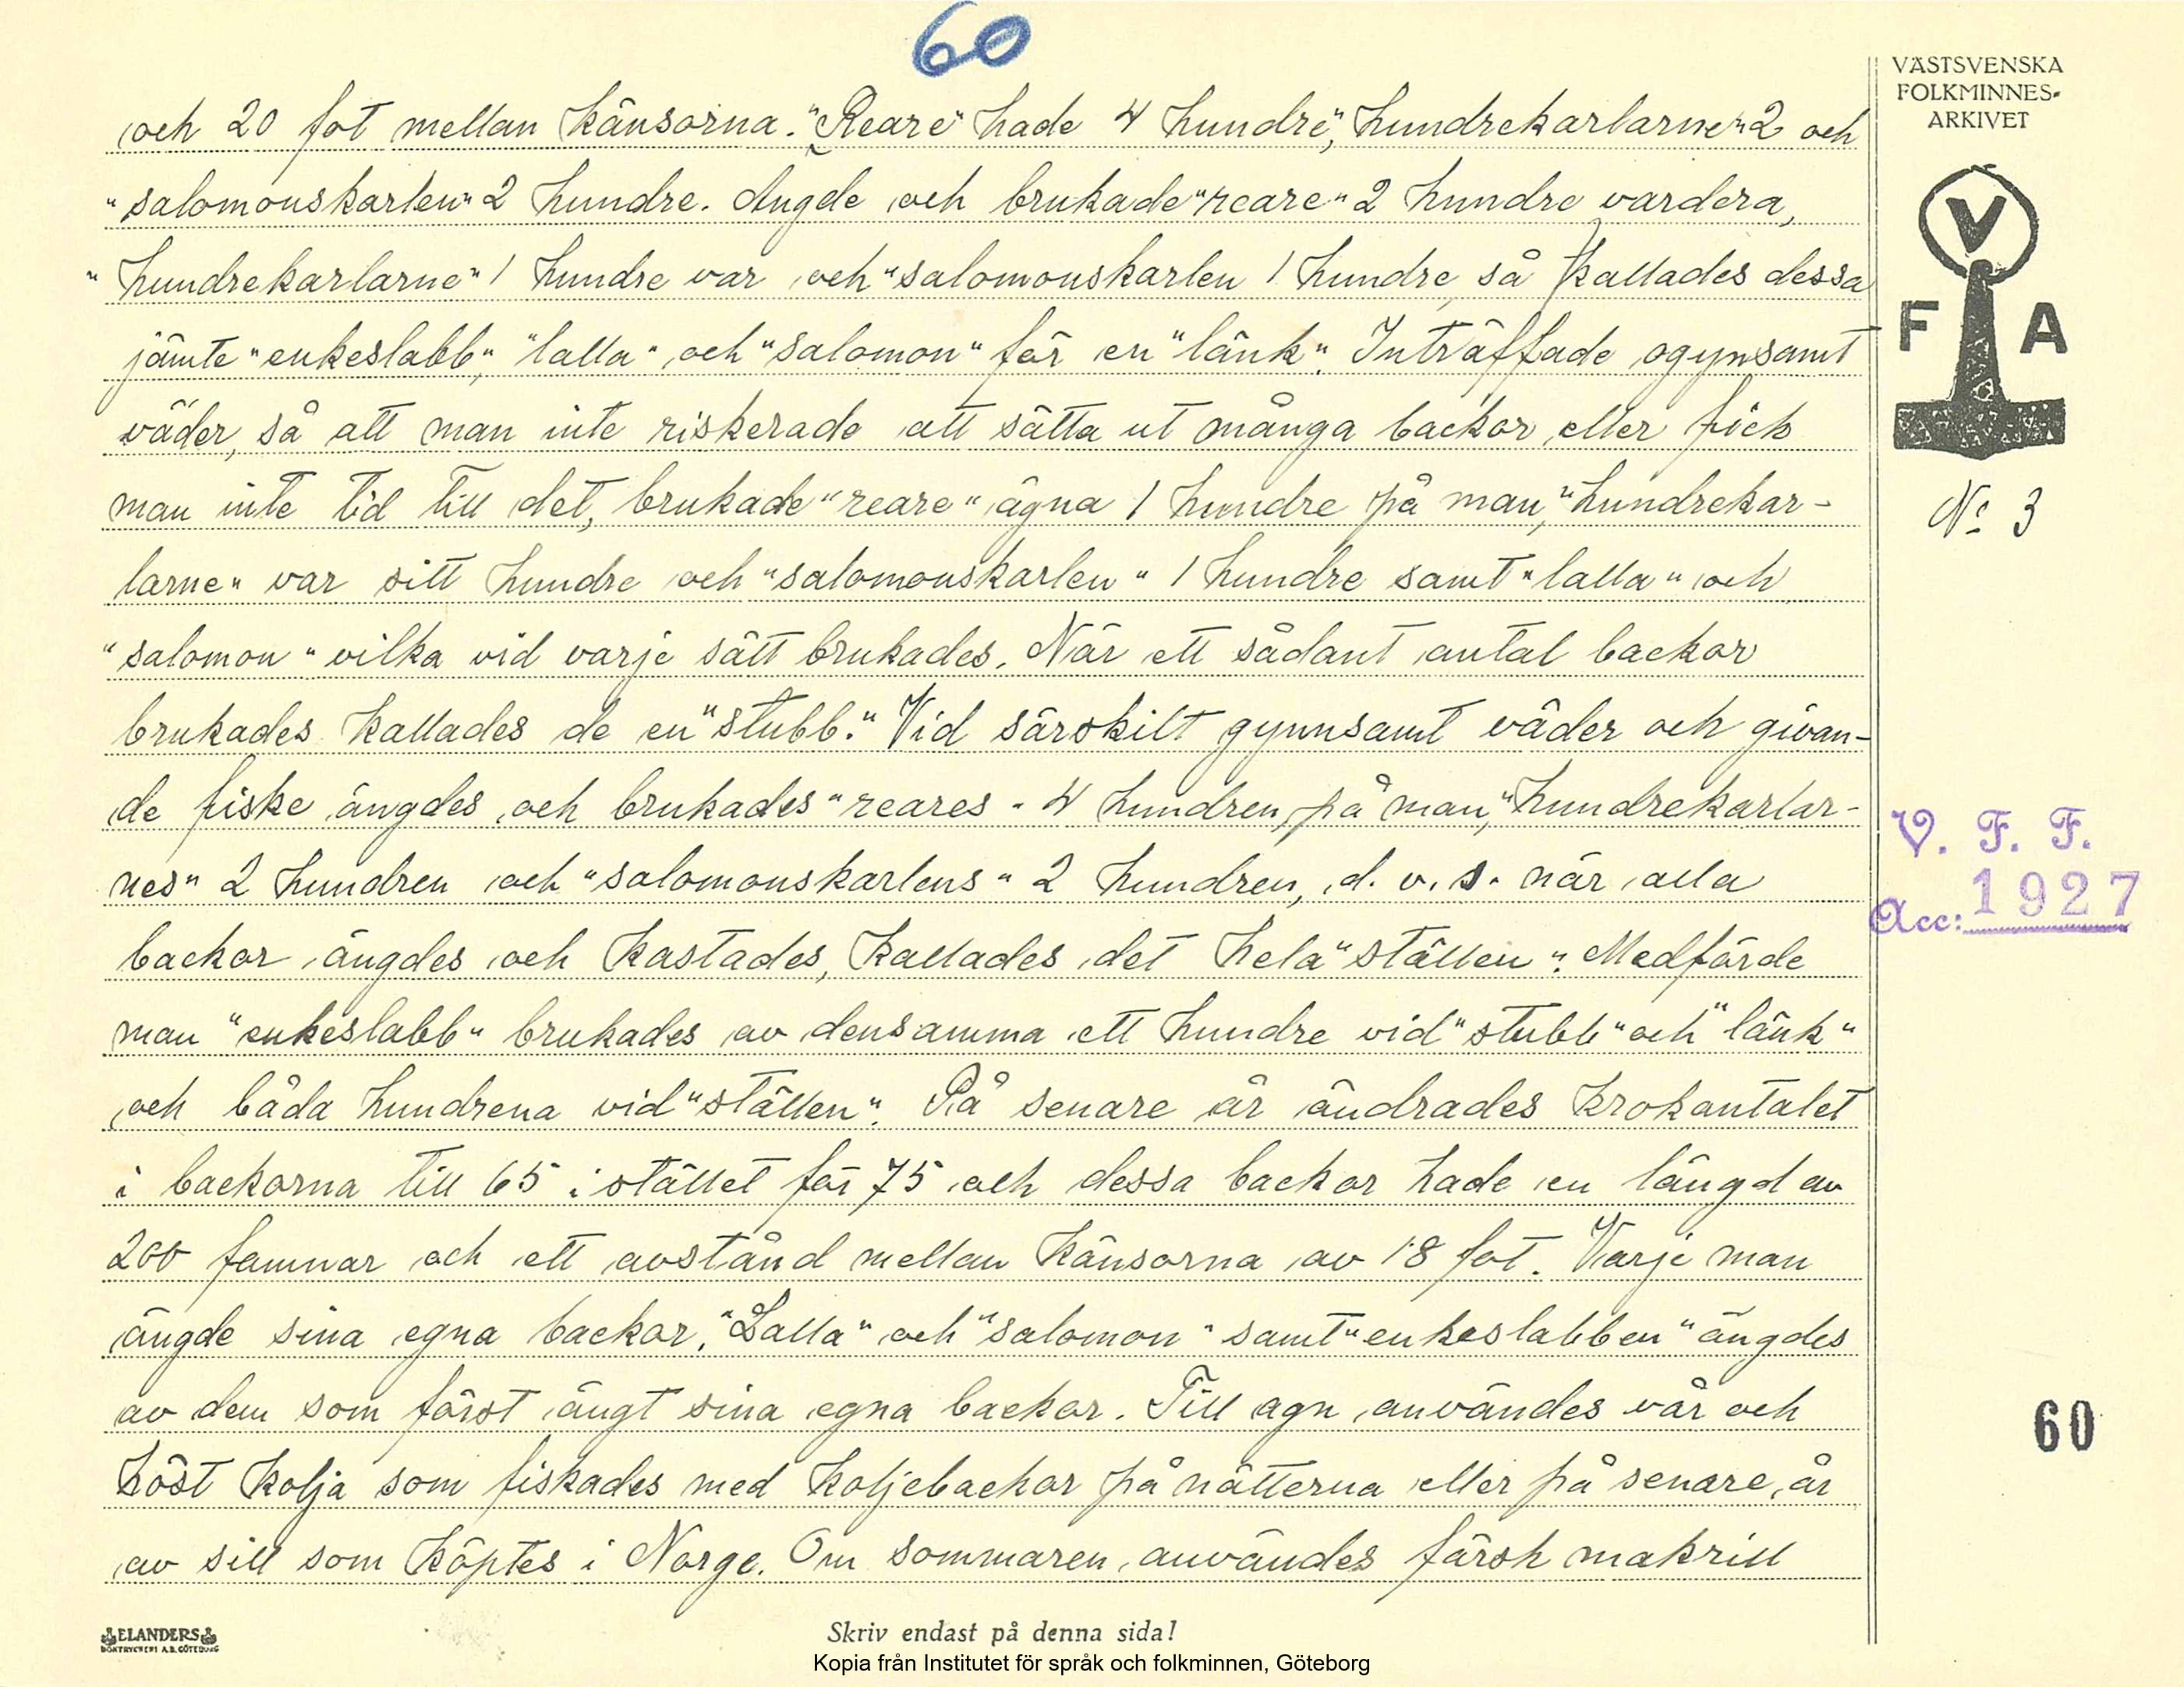 60
och 20 fot mellan känsorna. "Reare" hade 4 hundre, "hundrekarlarne" 2 och
"salomonskarlen" 2 hundre. Ängde och brukade "reare" 2 hundre vardera,
"hundrekarlarne" 1 hundre var och "salomonskarlen 1 hundre, så kallades dessa
jämte "enkeslabb", "lalla" och "salomon" för en "länk". Inträffade ogynsamt
väder, så att man inte riskerade att sätta ut många backor eller fick
man inte tid till det, brukade "reare" ägna 1 hundre på man, "hundrekar-
larne" var sitt hundre och "salomonskarlen" 1 hundre samt "lalla" och
"salomon" vilka vid varje sätt brukades. När ett sådant antal backor
brukades kallades de en "stubb". Vid särskilt gynnsamt väder och givan-
de fiske ängdes och brukades "reares" 4 hundren på man, "hundrekarlar-
nes" 2 hundren och "salomonskarlens" 2 hundren, d. v. s. när alla
backor ängdes och kastades, kallades det hela "ställen". Medförde
man "enkeslabb" brukades av densamma ett hundre vid "stubb" och "länk"
och båda hundrena vid "ställen". På senare år ändrades krokantalet
i backorna till 65 i stället för 75 och dessa backor hade en längd av
200 famnar och ett avstånd mellan känsorna av 18 fot. Varje man
ängde sina egna backor. "Lalla" och "salomon" samt "enkeslabben" ängdes
av dem som först ängt sina egna backor. Till agn användes vår och
höst kolja som fiskades med koljebackor på nätterna eller på senare år
av sill som köptes i Norge. Om sommaren användes färsk makrill
VÄSTSVENSKA
FOLKMINNES-
ARKIVET
V
F A
No 3
V. F. F.
Acc: 1927
60
ELANDERS
BOKTRYCKERI A.B. GÖTEBORG
Skriv endast på denna sida!
Kopia från Institutet för språk och folkminnen, Göteborg